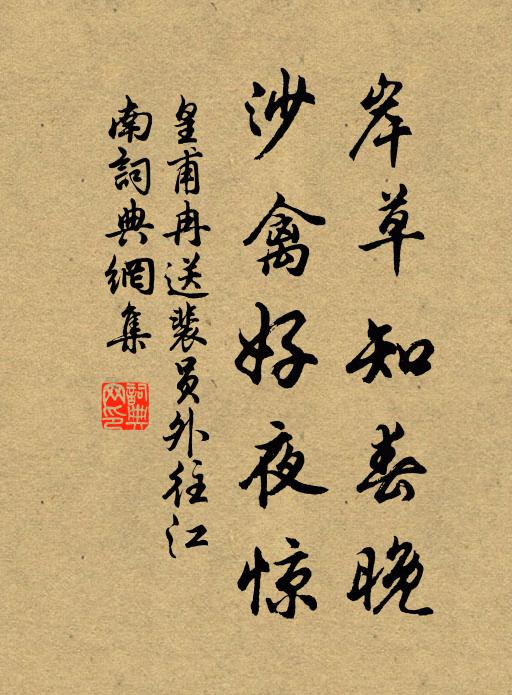 岸草知春晚
沙禽好夜惊
皇甫冉送裴员外往江
南詞典網集
詞典
网印